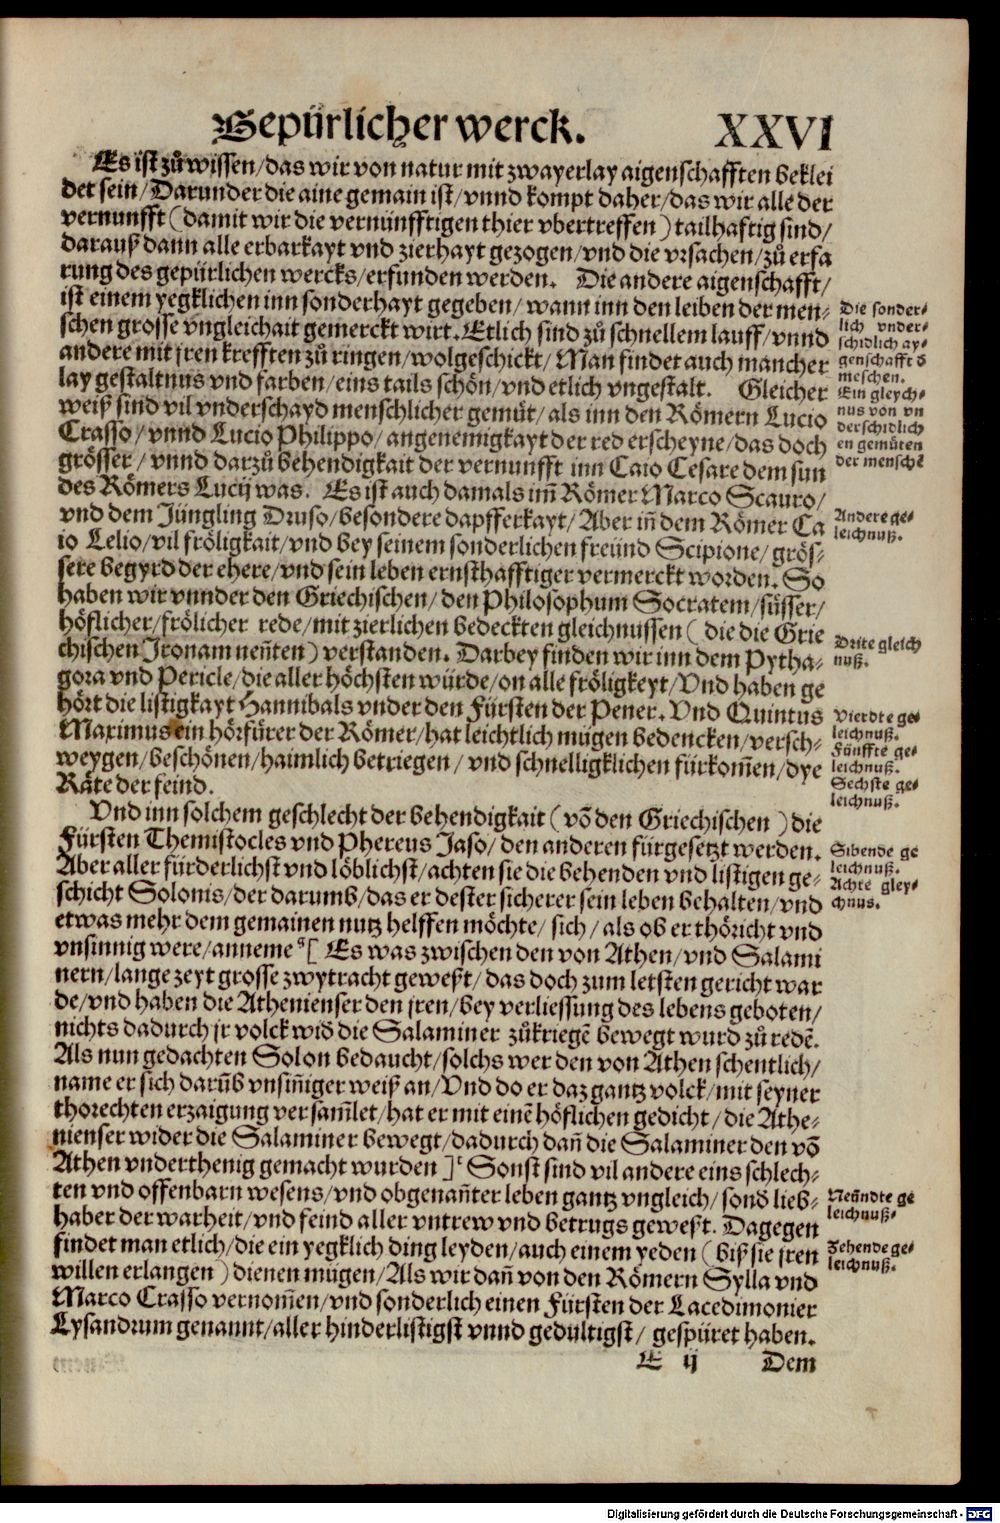 Gepürlicher werck. XXVI
Es ist zů wissen/das wir von natur mit zwayerlay aigenschafften beklei
det sein/Darunder die aine gemain ist/vnnd kompt daher/das wir alle der
vernunfft (damit wir die vernünfftigen thier vbertreffen) tailhaftig sind/
darauß dann alle erbarkayt vnd zierhayt gezogen/vnd die vrsachen/zů erfa
rung des gepürlichen wercks/erfunden werden. Die andere aigenschafft/
ist einem yegklichen inn sonderhayt gegeben/wann inn den leiben der men-
schen grosse vngleichait gemerckt wirt. Etlich sind zů schnellem lauff/vnnd
andere mit jren krefften zů ringen/wolgeschickt/Man findet auch mancher
lay gestaltnus vnd farben/eins tails schön/vnd etlich vngestalt. Gleicher
weiß sind vil vnderschayd menschlicher gemüt/als inn den Römern Lucio
Crasso/vnnd Lucio Philippo/angenemigkayt der red erscheyne/das doch
grösser/vnnd darzů behendigkait der vernunfft inn Caio Cesare dem sun
des Römers Lucij was. Es ist auch damals im̃ Römer Marco Scauro/
vnd dem Jüngling Druso/besondere dapfferkayt/Aber in̄ dem Römer Ca
io Lelio/vil fröligkait/vnd bey seinem sonderlichen freünd Scipione/grös-
sere begyrd der ehere/vnd sein leben ernsthafftiger vermerckt worden. So
haben wir vnnder den Griechischen/den Philosophum Socratem/süsser/
höflicher/frölicher rede/mit zierlichen bedeckten gleichnussen (die die Grie
chischen Ironam nen̄ten) verstanden. Darbey finden wir inn dem Pytha-
gora vnd Pericle/die aller höchsten würde/on alle fröligkeyt/Vnd haben ge
hört die listigkayt Hannibals vnder den Fürsten der Pener. Vnd Quintus
Maximus ein hörfürer der Römer/hat leichtlich mügen bedencken/versch-
weygen/beschönen/haimlich betriegen/vnd schnelligklichen fürkom̄en/dye
Räte der feind.
Vnd inn solchem geschlecht der behendigkait (vō den Griechischen) die
Fürsten Themistocles vnd Phereus Jaso/den anderen fürgesetzt werden.
Aber aller fürderlichst vnd löblichst/achten sie die behenden vnd listigen ge-
schicht Solonis/der darumb/das er dester sicherer sein leben behalten/vnd
etwas mehr dem gemainen nutz helffen möchte/sich/als ob er thöricht vnd
vnsinnig were/anneme [ Es was zwischen den von Athen/vnd Salami
nern/lange zeyt grosse zwytracht geweßt/das doch zum letsten gericht war
de/vnd haben die Athenienser den jren/bey verliessung des lebens geboten/
nichts dadurch jr volck wid̄ die Salaminer zůkriegē bewegt wurd zů redē.
Als nun gedachten Solon bedaucht/solchs wer den von Athen schentlich/
name er sich darūb vnsin̄iger weiß an/Vnd do er daz gantz volck/mit seyner
thorechten erzaigung versam̄let/hat er mit einē höflichen gedicht/die Athe-
nienser wider die Salaminer bewegt/dadurch dan̄ die Salaminer den vō
Athen vnderthenig gemacht wurden ] Sonst sind vil andere eins schlech-
ten vnd offenbarn wesens/vnd obgenan̄ter leben gantz vngleich/sond̄ lieb-
haber der warheit/vnd feind aller vntrew vnd betrugs geweßt. Dagegen
findet man etlich/die ein yegklich ding leyden/auch einem yeden (biß sie jren
willen erlangen) dienen mügen/Als wir dan̄ von den Römern Sylla vnd
Marco Crasso vernom̄en/vnd sonderlich einen Fürsten der Lacedimonier
Lysandrum genannt/aller hinderlistigst vnnd gedultigst/gespüret haben.
E ij Dem
Die sonder-
lich vnder-
schidlich ay-
genschafft d̄
meschen.
Ein gleych-
nus von vn
derschidlich
en gemüten
der menschē
Andere ge-
leichnuß.
Drite gleich
nuß.
Vierdte ge-
leichnuß.
Fünffte ge-
leichnuß.
Sechste ge-
leichnuß.
Sibende ge
leichnuß.
Achte gley-
chnus.
Neündte ge
leichnuß.
Zehende ge-
leichnuß.
Digitalisierung gefördert durch die Deutsche Forschungsgemeinschaft - DFG